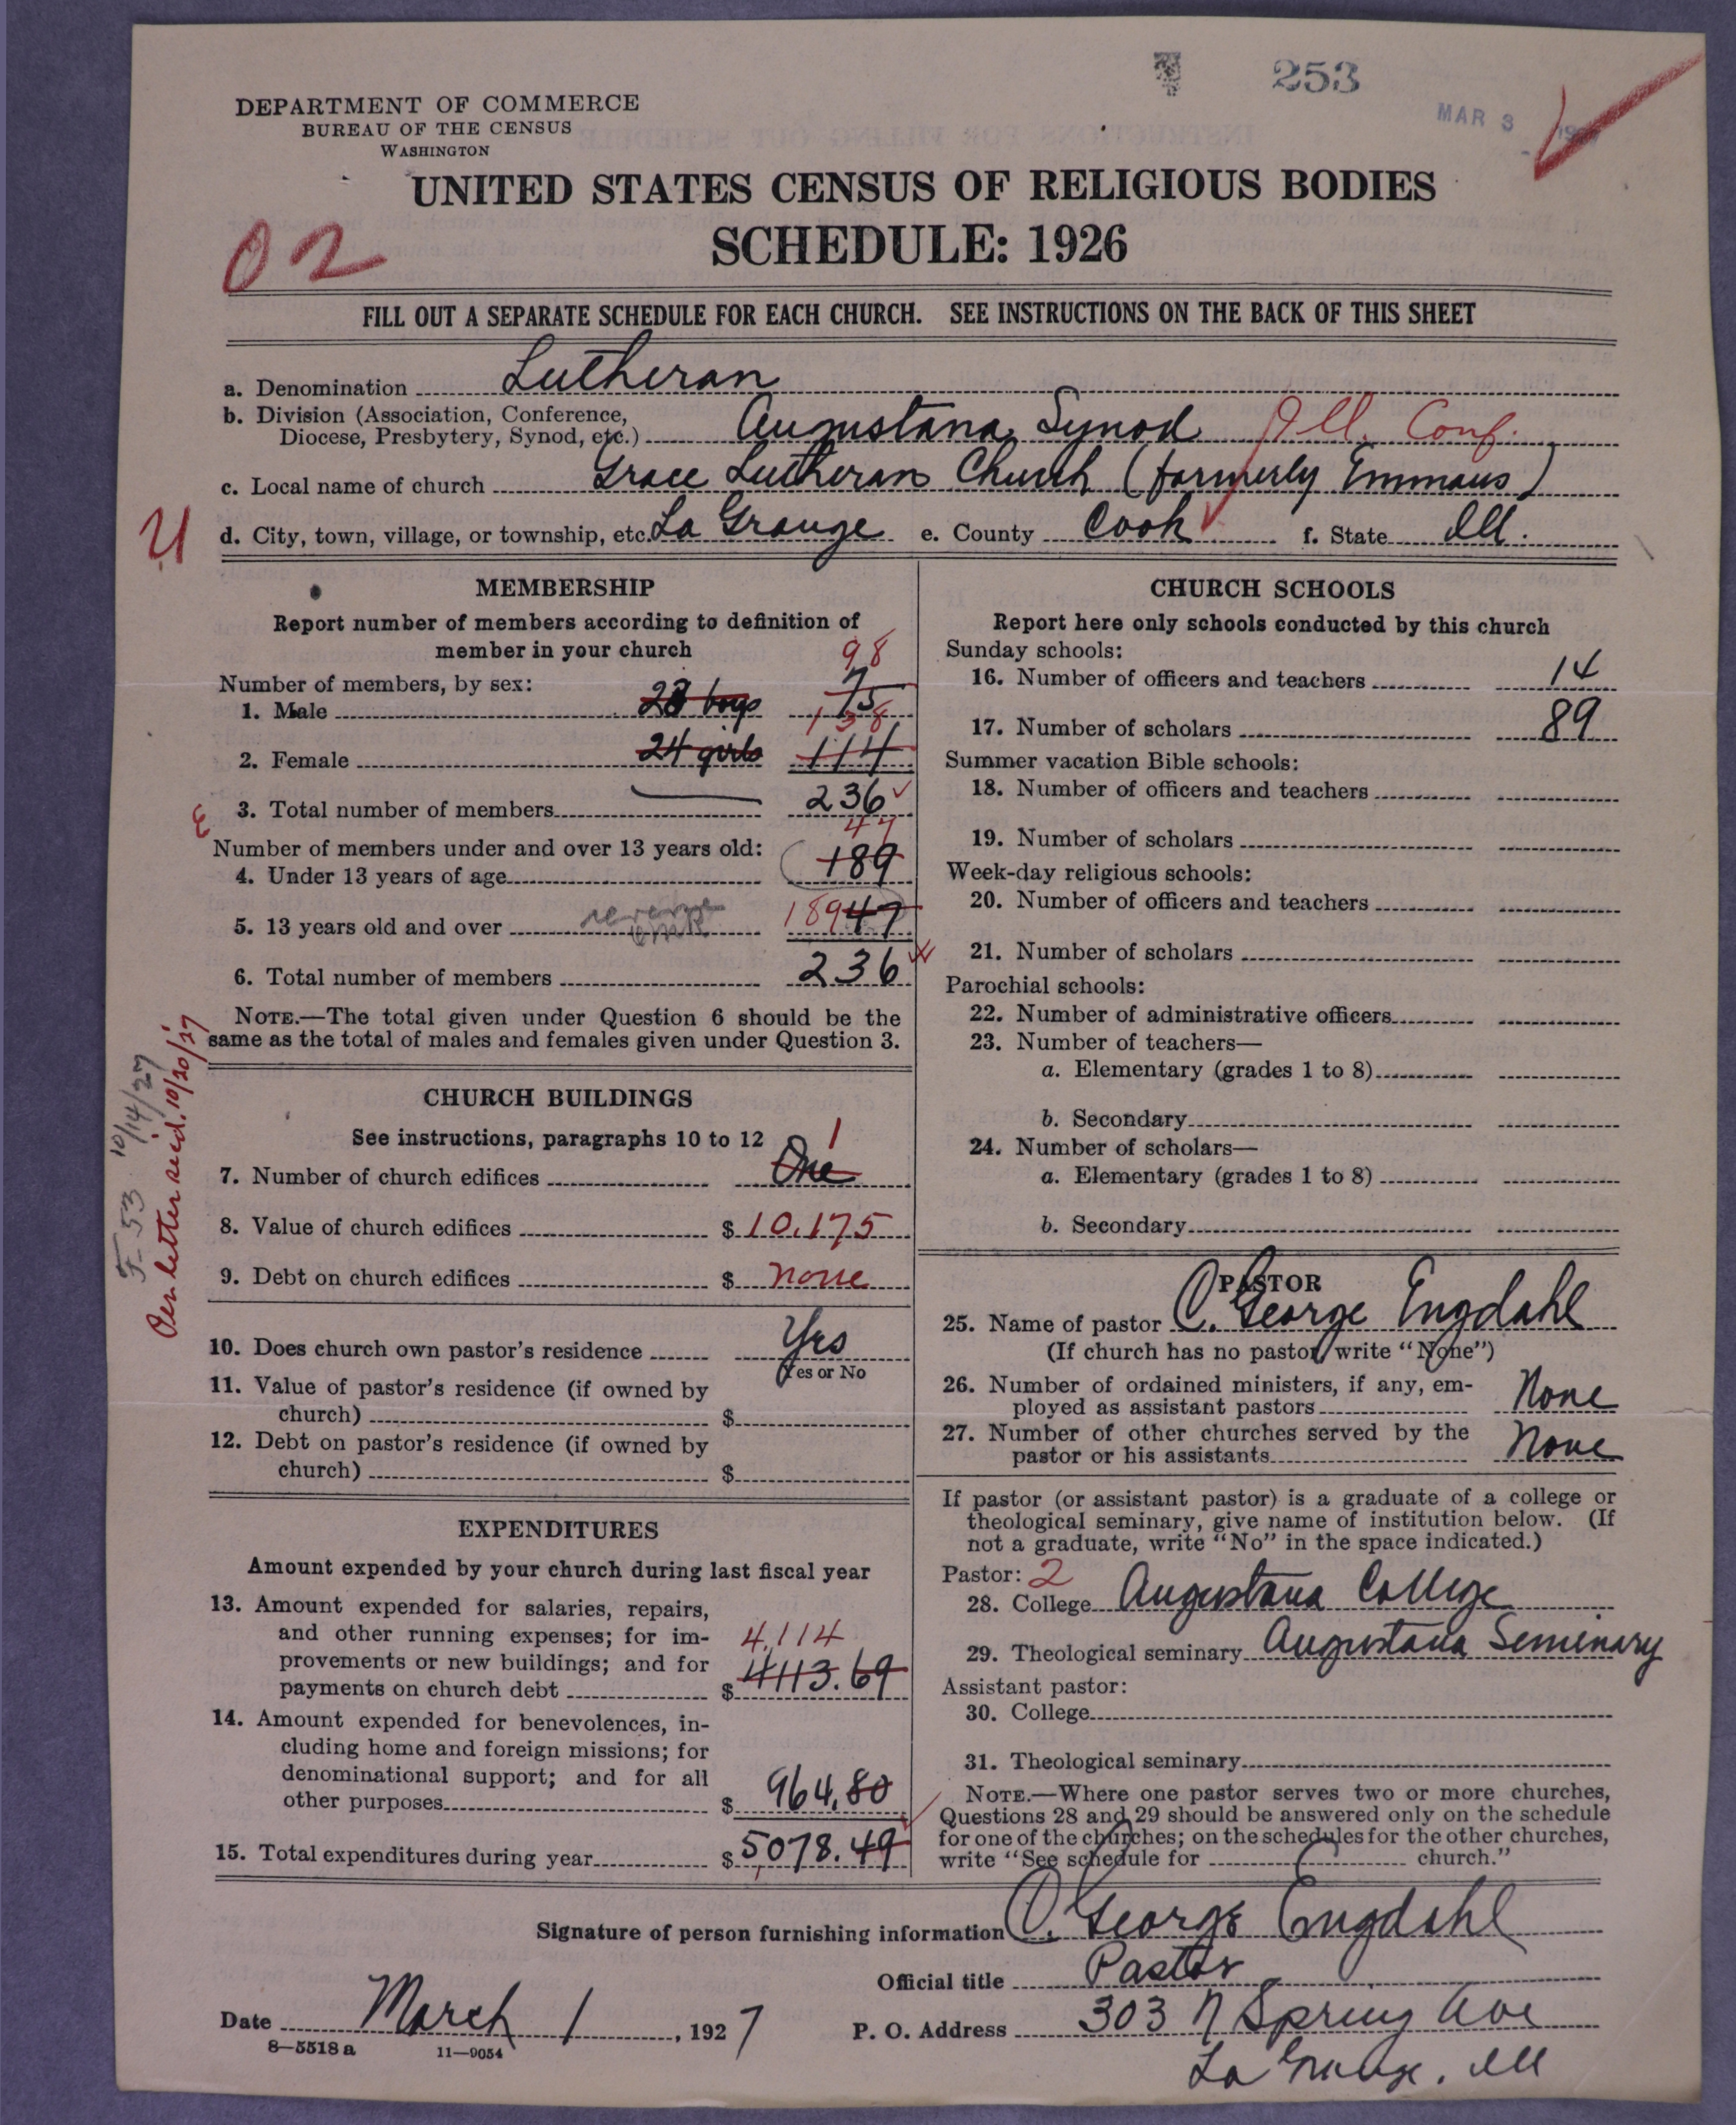 253
MAR 3
DEPARTMENT OF COMMERCE
BUREAU OF THE CENSUS
WASHINGTON
UNITED STATES CENSUS OF RELIGIOUS BODIES
SCHEDULE: 1926
02
FILL OUT A SEPARATE SCHEDULE FOR EACH CHURCH. SEE INSTRUCTIONS ON THE BACK OF THIS SHEET
a. Denomination Lutheran
b. Division (Association, Conference,
Diocese, Presbytery, Synod, etc.) Augustana Synod Ill. Conf.
c. Local name of church Grace Lutheran Church (formerly Emmaus)
d. City, town, village, or township, etc. La Grange e. County Cook f. State Ill.
MEMBERSHIP
Report number of members according to definition of
member in your church
98
Number of members, by sex:
1. Male 23 boys 75
138
2. Female 24 girls 114
3. Total number of members 236
47
Number of members under and over 13 years old:
4. Under 13 years of age 189
5. 13 years old and over reverse 189 47
6. Total number of members 236
NOTE.—The total given under Question 6 should be the
same as the total of males and females given under Question 3.
F-53 10/14/27
Per letter recd. 10/20/27
CHURCH BUILDINGS
See instructions, paragraphs 10 to 12
1
7. Number of church edifices One
8. Value of church edifices $ 10,175
9. Debt on church edifices $ none
10. Does church own pastor's residence Yes
Yes or No
11. Value of pastor's residence (if owned by
church) $
12. Debt on pastor's residence (if owned by
church) $
EXPENDITURES
Amount expended by your church during last fiscal year
13. Amount expended for salaries, repairs,
and other running expenses; for im- 4,114
provements or new buildings; and for
payments on church debt $ 4113.69
14. Amount expended for benevolences, in-
cluding home and foreign missions; for
denominational support; and for all
other purposes $ 964.80
15. Total expenditures during year $ 5078.49
CHURCH SCHOOLS
Report here only schools conducted by this church
Sunday schools:
16. Number of officers and teachers 14
17. Number of scholars 89
Summer vacation Bible schools:
18. Number of officers and teachers
19. Number of scholars
Week-day religious schools:
20. Number of officers and teachers
21. Number of scholars
Parochial schools:
22. Number of administrative officers
23. Number of teachers—
a. Elementary (grades 1 to 8)
b. Secondary
24. Number of scholars—
a. Elementary (grades 1 to 8)
b. Secondary
PASTOR
25. Name of pastor C. George Engdahl
(If church has no pastor, write "None")
26. Number of ordained ministers, if any, em-
ployed as assistant pastors None
27. Number of other churches served by the
pastor or his assistants None
If pastor (or assistant pastor) is a graduate of a college or
theological seminary, give name of institution below. (If
not a graduate, write "No" in the space indicated.)
Pastor: 2
28. College Augustana College
29. Theological seminary Augustana Seminary
Assistant pastor:
30. College
31. Theological seminary
NOTE.—Where one pastor serves two or more churches,
Questions 28 and 29 should be answered only on the schedule
for one of the churches; on the schedules for the other churches,
write "See schedule for church."
Signature of person furnishing information C. George Engdahl
Official title Pastor
Date March 1, 1927 P. O. Address 303 N Spring Ave
La Grange, Ill
8—5518 a 11—9054